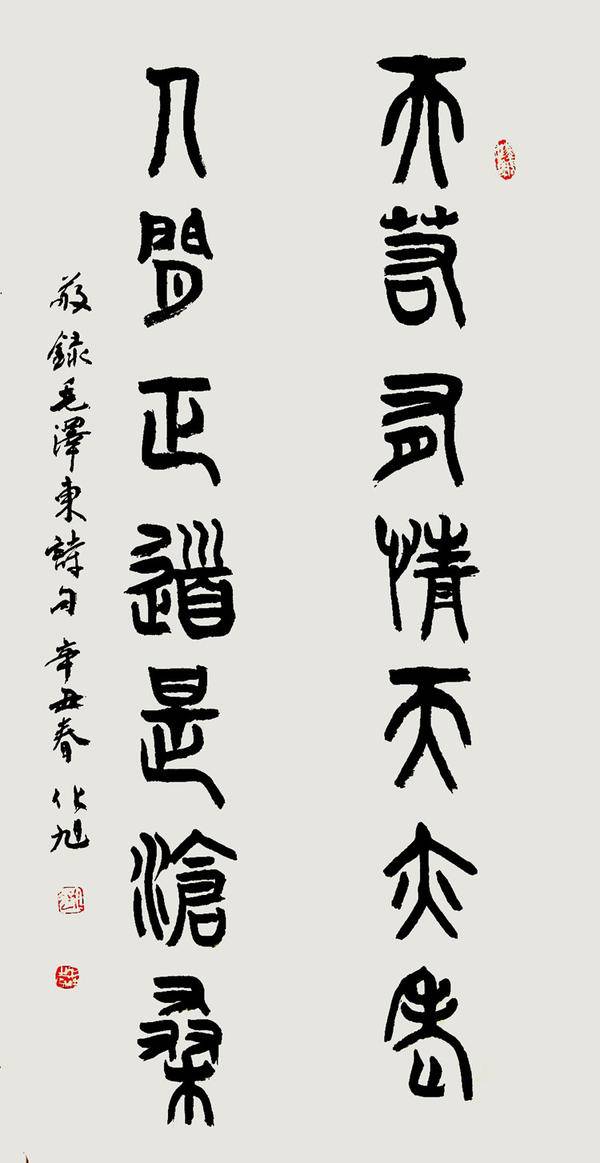 天若有情天亦老
人間正道是滄桑
敬録毛澤東詩句辛丑春化旭